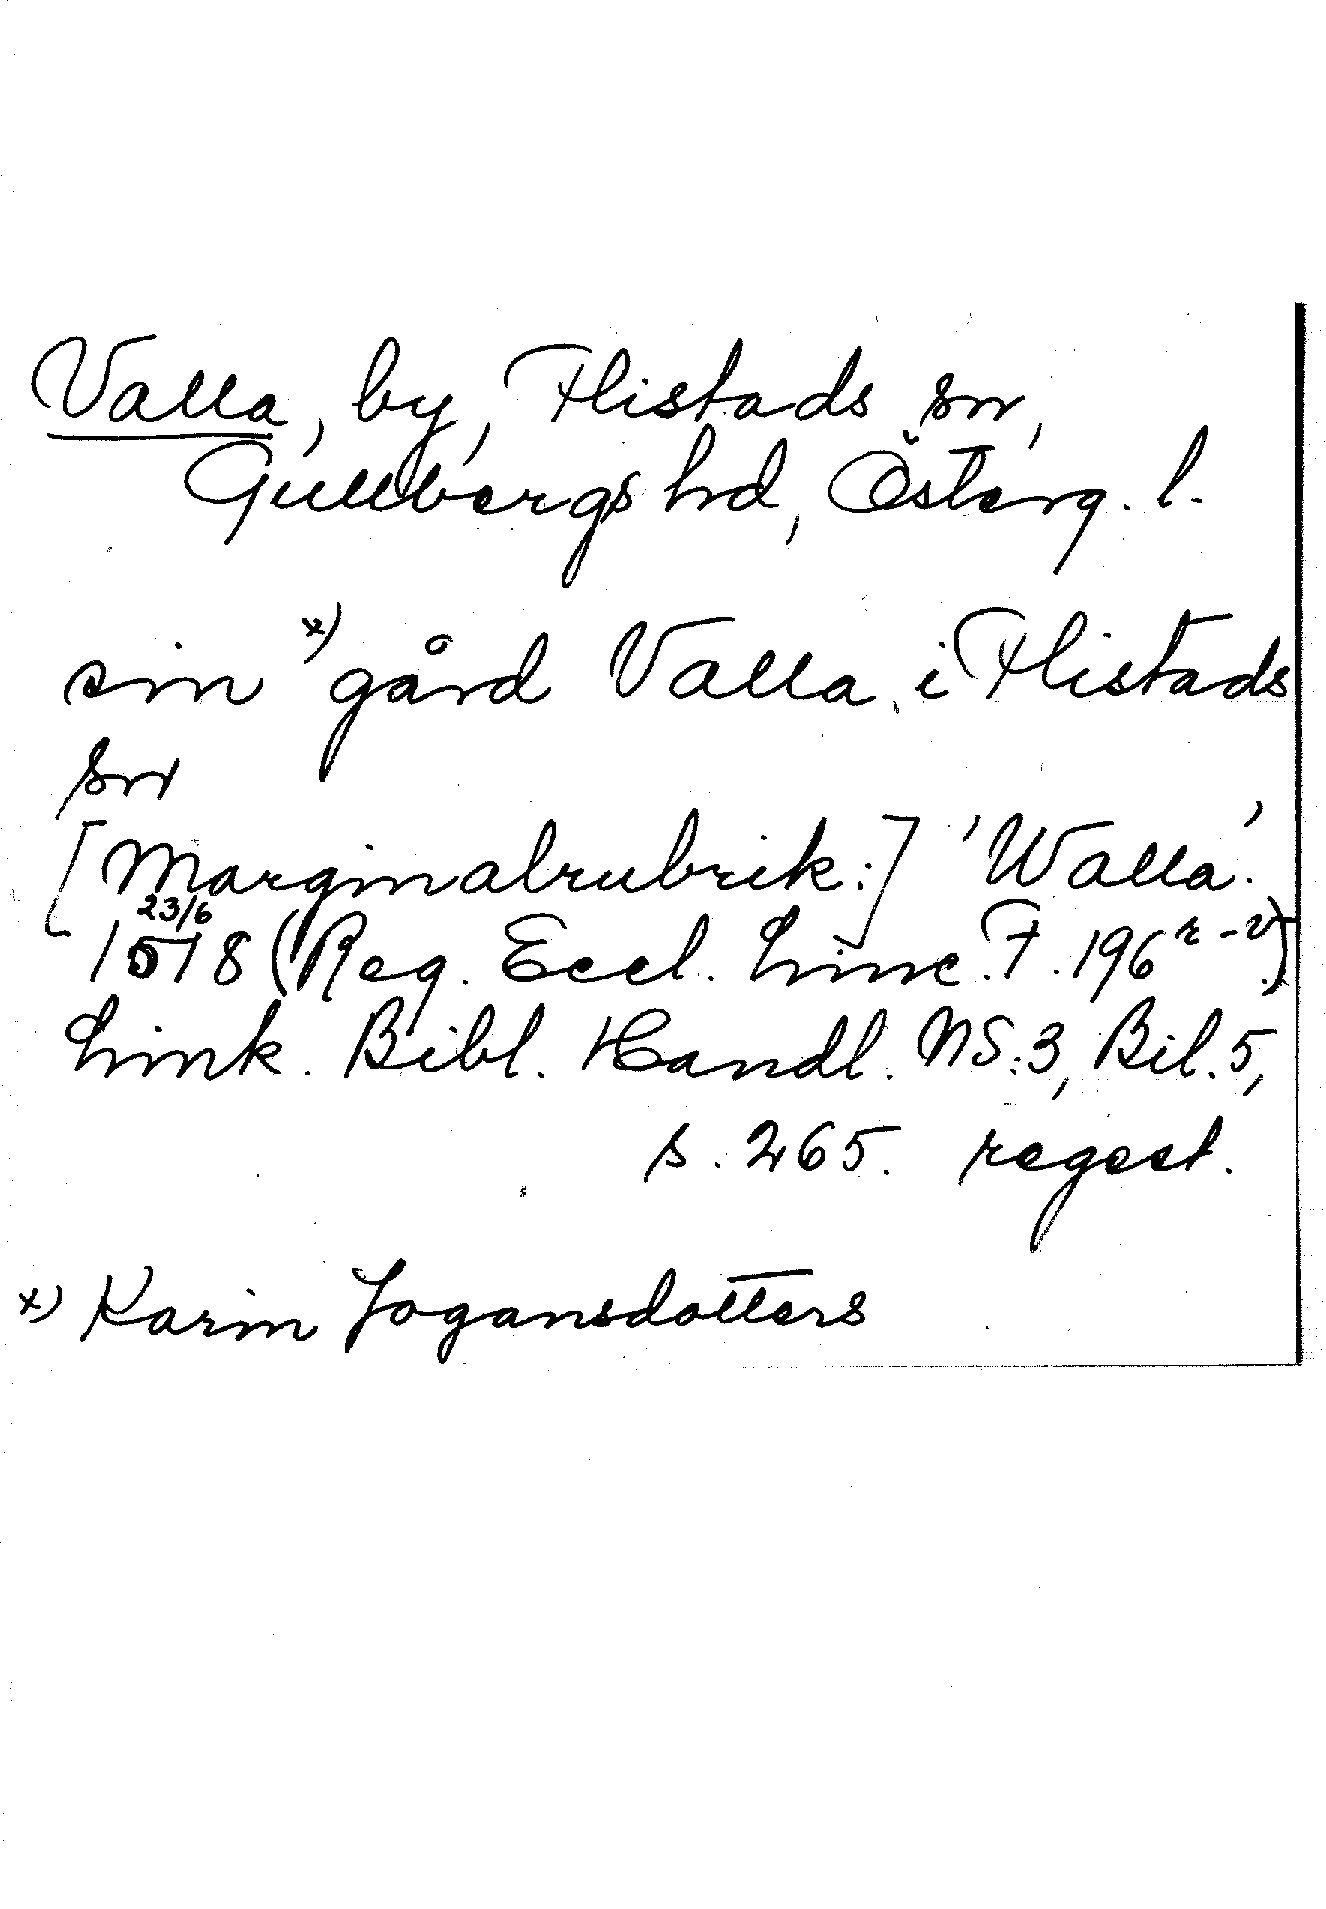 Valla, by, Flistads sn,
Gullbergs hd, Österg. l.
sin x) gård Valla i Flistads
sn
[Marginalrubrik:] 'Walla'.
23/6
1518 (Reg. Eccl. Linc. F. 196 r-v)
Link. Bibl. Handl. NS:3, Bil. 5,
s. 265. regest.
x) Karin Jogansdotters